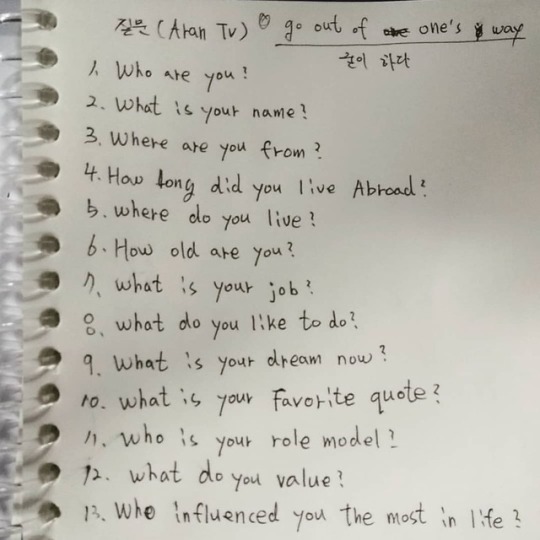 질문 (Aran Tv) ♡ go out of one's way
굳이 하다
1. Who are you?
2. What is your name?
3. Where are you from?
4. How long did you live Abroad?
5. where do you live?
6. How old are you?
7. what is your job?
8. what do you like to do?
9. What is your dream now?
10. what is your favorite quote?
11. who is your role model?
12. what do you value?
13. Who influenced you the most in life?